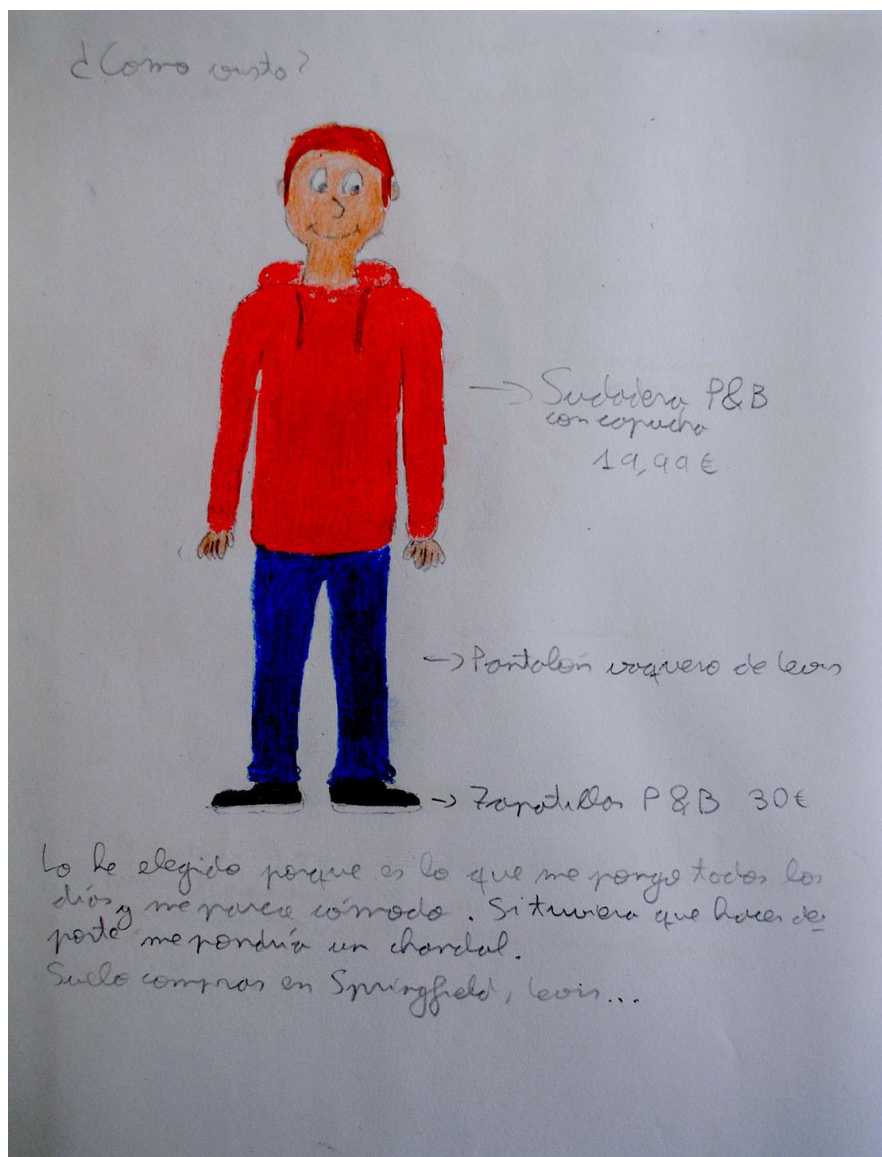 ¿Cómo visto?
Sudadera P&B
con capucha
19,99 €
Pantalón vaquero de levis
Zapatillas P&B 30€
Lo he elegido porque es lo que me pongo todos los
días y me parece cómodo. Si tuviera que hacer de-
porte me pondría un chandal.
Suelo comprar en Springfield, levis...